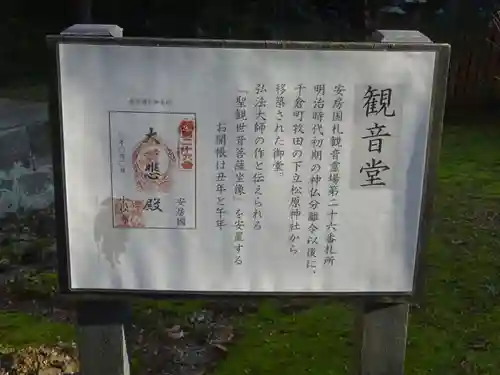 観音堂
安房国札観音霊場第二十六番札所
明治時代初期の神仏分離令以後に、
千倉町牧田の下立松原神社から
移築された御堂。
弘法大師の作と伝えられる
『聖観世音菩薩坐像』を安置する
お開帳は丑年と午年
第二十六番
大悲殿
安房國